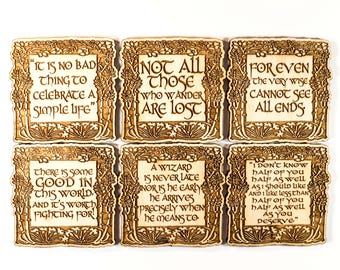 "IT IS NO BAD
THING TO
CELEBRATE A
SIMPLE LIFE"
NOT ALL
THOSE
WHO WANDER
ARE LOST
FOR EVEN
THE VERY WISE
CANNOT SEE
ALL ENDS
THERE IS SOME
GOOD IN
THIS WORLD
AND IT'S WORTH
FIGHTING FOR!
A WIZARD
IS NEVER LATE
NOR IS HE EARLY
HE ARRIVES
PRECISELY WHEN
HE MEANS TO
"I DON'T KNOW
HALF OF YOU
HALF AS WELL
AS I SHOULD LIKE
AND I LIKE LESS THAN
HALF OF YOU
HALF AS WELL
AS YOU
DESERVE"